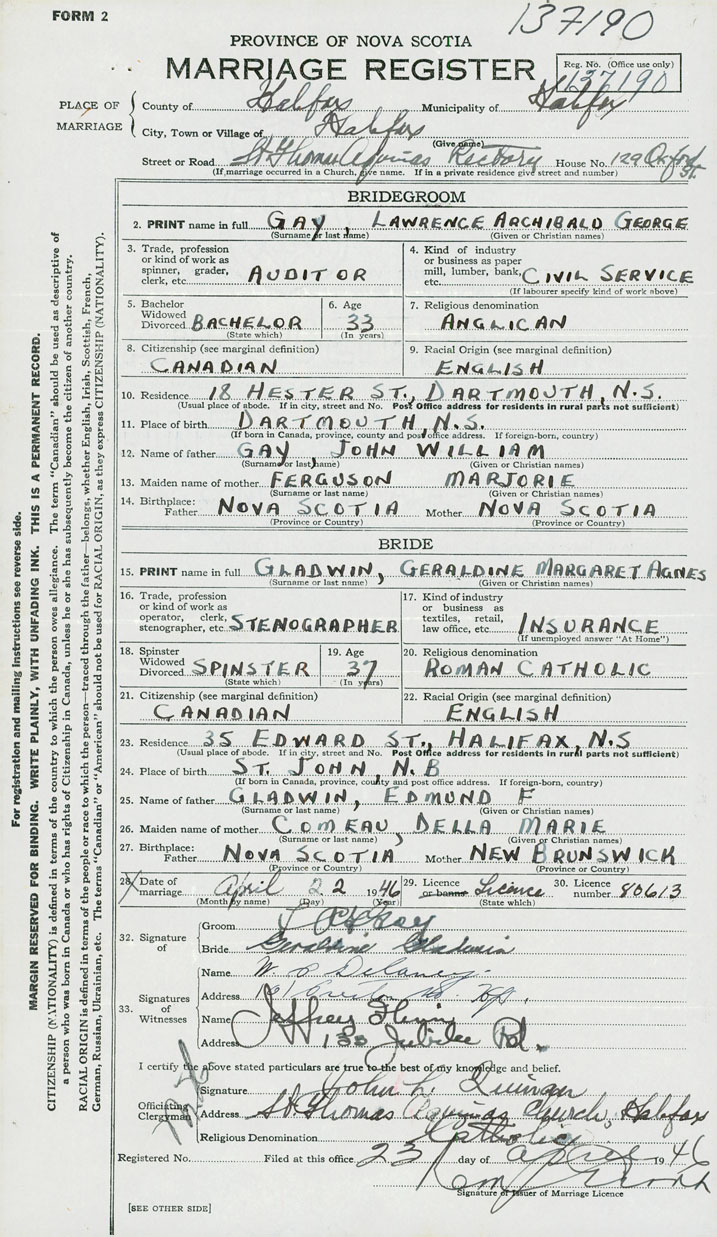 FORM 2
137190
PROVINCE OF NOVA SCOTIA
MARRIAGE REGISTER
Reg. No. (Office use only)
137190
PLACE OF MARRIAGE
County of Halifax Municipality of Halifax
City, Town or Village of Halifax
(Give name)
Street or Road St Thomas Aquinas Rectory House No. 129 Oxford St.
(If marriage occurred in a Church, give name. If in a private residence give street and number)
BRIDEGROOM
2. PRINT name in full GAY, LAWRENCE ARCHIBALD GEORGE
(Surname or last name) (Given or Christian names)
3. Trade, profession or kind of work as spinner, grader, clerk, etc. AUDITOR
4. Kind of industry or business as paper mill, lumber, bank, etc. CIVIL SERVICE
(If labourer specify kind of work above)
5. Bachelor Widowed Divorced BACHELOR
(State which)
6. Age 33
(In years)
7. Religious denomination
ANGLICAN
8. Citizenship (see marginal definition)
CANADIAN
9. Racial Origin (see marginal definition)
ENGLISH
10. Residence 18 HESTER ST., DARTMOUTH, N.S.
(Usual place of abode. If in city, street and No. Post Office address for residents in rural parts not sufficient)
11. Place of birth DARTMOUTH, N.S.
(If born in Canada, province, county and post office address. If foreign-born, country)
12. Name of father GAY, JOHN WILLIAM
(Surname or last name) (Given or Christian names)
13. Maiden name of mother FERGUSON MARJORIE
(Surname or last name) (Given or Christian names)
14. Birthplace: Father NOVA SCOTIA Mother NOVA SCOTIA
(Province or Country) (Province or Country)
BRIDE
15. PRINT name in full GLADWIN, GERALDINE MARGARET AGNES
(Surname or last name) (Given or Christian names)
16. Trade, profession or kind of work as operator, clerk, stenographer, etc. STENOGRAPHER
17. Kind of industry or business as textiles, retail, law office, etc. INSURANCE
(If unemployed answer "At Home")
18. Spinster Widowed Divorced SPINSTER
(State which)
19. Age 37
(In years)
20. Religious denomination
ROMAN CATHOLIC
21. Citizenship (see marginal definition)
CANADIAN
22. Racial Origin (see marginal definition)
ENGLISH
23. Residence 35 EDWARD ST., HALIFAX, N.S
(Usual place of abode. If in city, street and No. Post Office address for residents in rural parts not sufficient)
24. Place of birth ST. JOHN, N.B
(If born in Canada, province, county and post office address. If foreign-born, country)
25. Name of father GLADWIN, EDMUND F
(Surname or last name) (Given or Christian names)
26. Maiden name of mother COMEAU, DELLA MARIE
(Surname or last name) (Given or Christian names)
27. Birthplace: Father NOVA SCOTIA Mother NEW BRUNSWICK
(Province or Country) (Province or Country)
28. Date of marriage April 22 1946
(Month by name) (Day) (Year)
29. Licence or banns Licence
(State which)
30. Licence number 80613
32. Signature of
Groom
Bride Geraldine Gladwin
33. Signatures of Witnesses
Name W. P. Delaney.
Address
Name Jeffrey Flinn
Address 135 Jubilee Rd.
I certify the above stated particulars are true to the best of my knowledge and belief.
Officiating Clergyman
Signature John L. Quinan
Address St Thomas Aquinas Church, Halifax
Religious Denomination Catholic
Registered No. Filed at this office 23 day of April 1946
Signature of Issuer of Marriage Licence
[SEE OTHER SIDE]
For registration and mailing instructions see reverse side.
MARGIN RESERVED FOR BINDING. WRITE PLAINLY, WITH UNFADING INK. THIS IS A PERMANENT RECORD.
CITIZENSHIP (NATIONALITY) is defined in terms of the country to which the person owes allegiance. The term "Canadian" should be used as descriptive of
a person who was born in Canada or who has rights of Citizenship in Canada, unless he or she has subsequently become the citizen of another country.
RACIAL ORIGIN is defined in terms of the people or race to which the person—traced through the father—belongs, whether English, Irish, Scottish, French,
German, Russian, Ukrainian, etc. The terms "Canadian" or "American" should not be used for RACIAL ORIGIN, as they express CITIZENSHIP (NATIONALITY).